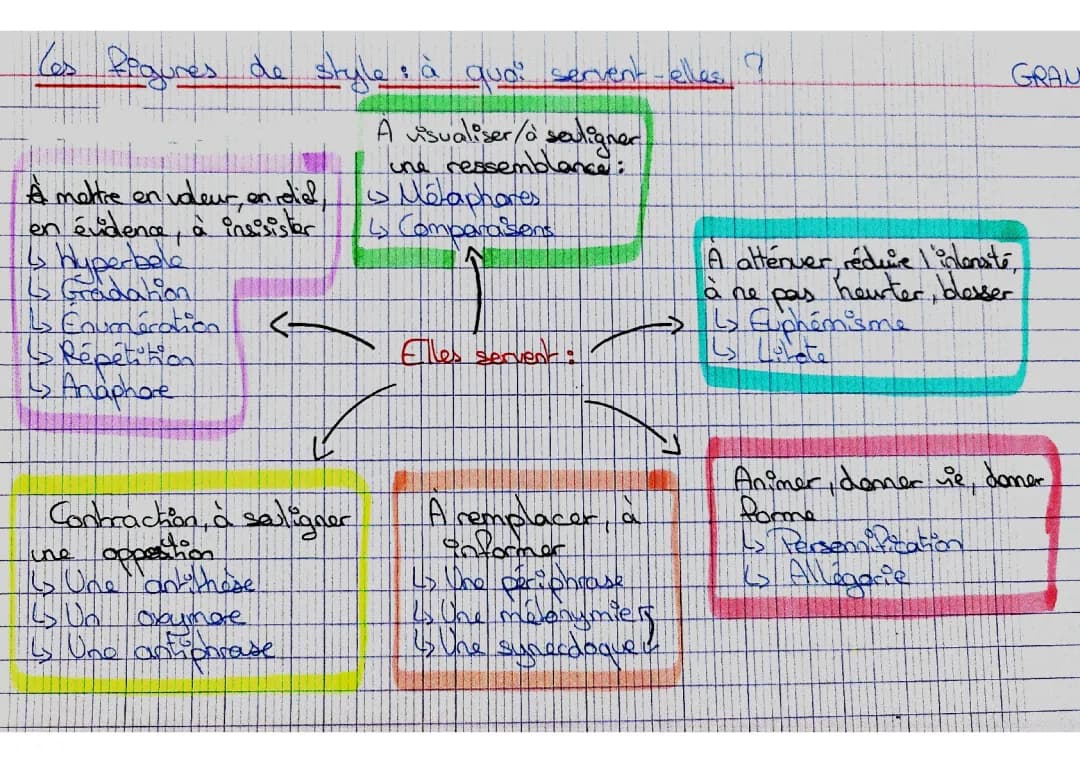 Les figures de style : à quoi servent-elles ?
GRAU
À visualiser/à souligner
une ressemblance :
↳ Métaphores
↳ Comparaisons
À mettre en valeur, en relief,
en évidence, à insister
↳ Hyperbole
↳ Gradation
↳ Énumération
↳ Répétition
↳ Anaphore
À atténuer, réduire l'intensité,
à ne pas heurter, blesser
↳ Euphémisme
↳ Litote
Elles servent :
Contraction, à souligner
une opposition
↳ Une antithèse
↳ Un oxymore
↳ Une antiphrase
À remplacer, à
informer
↳ Une périphrase
↳ Une métonymie
↳ Une synecdoque
Animer, donner vie, donner
forme
↳ Personnification
↳ Allégorie